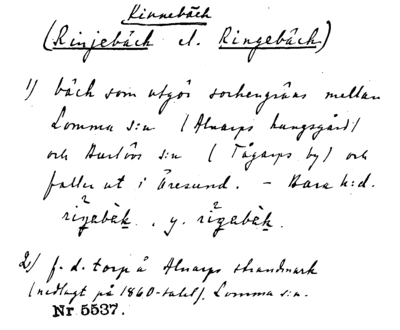 Kinnebäck
(Rinjebäck el. Ringebäck)
1) bäck som utgör sockengräns mellan
Lomma s:n (Alnarps kungsgård)
och Burlövs s:n (Tågarps by) och
faller ut i Öresund. – Bara h:d.
2) f. d. torp å Alnarps strandmark
(nedlagt på 1860-talet). Lomma s:n.
Nr 5537.